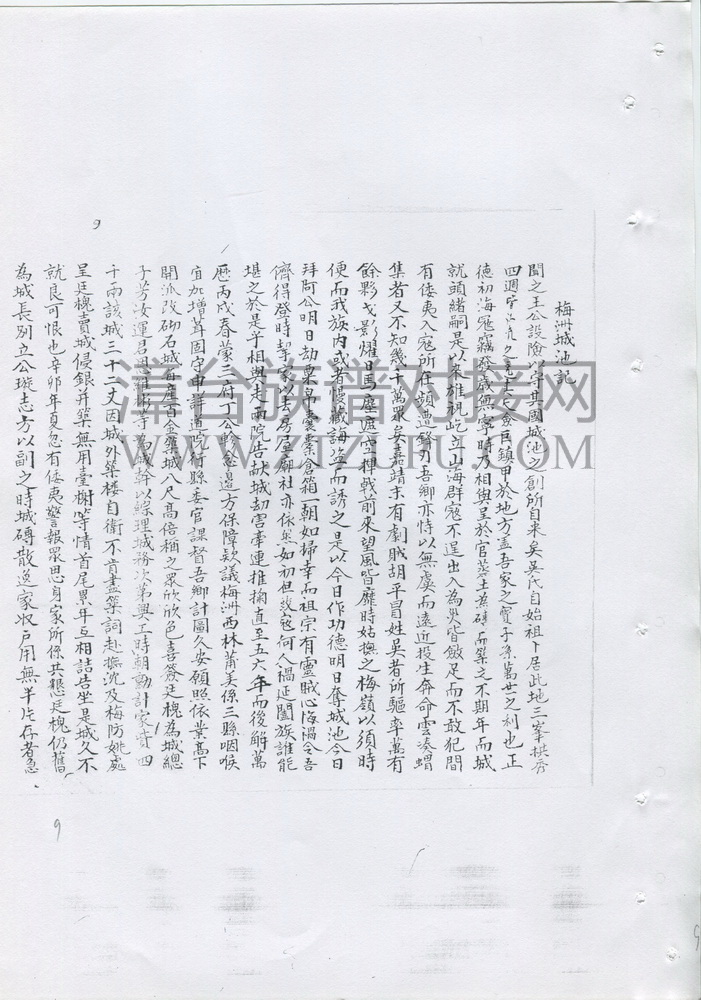 梅洲城池記
聞之王公設險以守其國城池之創所自来矣吳氏自始祖卜居此地三峯拱秀
四週寧鎮甲於地方盖吾家之寳子孫萬世之利也正
德初海寇竊發歲無寧時乃相與呈於官築土為磚而築之不期年而城
就頭緒嗣是以來雄視屹立山海群寇不逞出入為災皆斂足而不敢犯間
有倭夷入寇所在頻遭鋒刃吾鄉亦恃以無虞而遠近投生奔命雲凑蝟
集者又不知幾千萬眾矣嘉靖末有劇賊胡平冒姓吳者所驅率萬有
餘夥戈影耀日馬塵遮天揮戟前來望風皆靡時姑撫之梅嶺以須時
便而我族内或者慢藏誨盗而誘之是以今日作功德明日奪城池今日
拜阿公明日劫粟帛囊橐倉箱一朝如掃幸而祖宗有靈賊心悔禍令吾
儕得登時挈家以去房屋廟社亦依然如初但誘寇何人禍延闔族誰能
堪之於是乎相與走兩院告献城劫害牽連推摘直至五六年而後解萬
曆丙戌春蒙三府丁公軫念邉方保障欵議梅洲西林莆美係三縣咽喉
宜加增葺固守申詳道院行縣委官課督吾鄉計圖久安願照依業髙下
開派改砌石城每産百金築城八尺髙倍稱之眾欣欣色喜簽廷槐為城總
子芳汝運君思雅彬等為城幹以綜理城務次第興工時朝勳計家貲四
千兩該城三十二丈因城外築楼自衛不肯盡築詞赴撫沈及梅防姚處
呈廷槐賣城侵銀并築無用臺榭等情首尾累年互相詰告坐是城久不
就良可恨也辛卯年夏忽有倭夷警報眾思身家所係共懇廷槐仍舊
為城長別立公璇志方以副之時城磚散逸家収戸用無半片存者急
9
9
漳台族谱对接网
WWW.ZTZUPU.COM